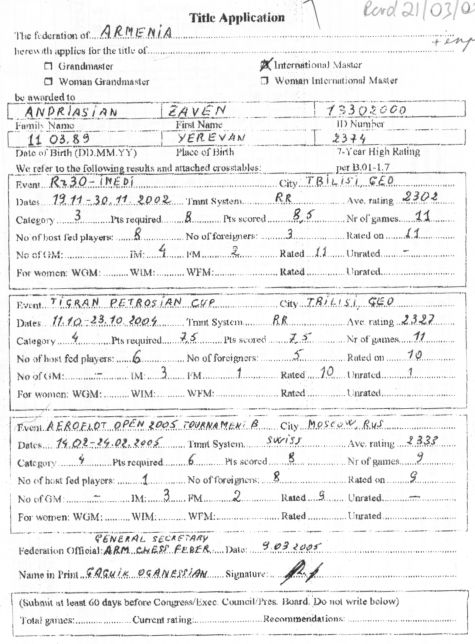 Title Application
Rcvd 21/03/0
The federation of ARMENIA
herewith applies for the title of
☐ Grandmaster ☒ International Master
☐ Woman Grandmaster ☐ Woman International Master
be awarded to
ANDRIASIAN ZAVEN 13302000
Family Name First Name ID Number
11 03.89 YEREVAN 2374
Date of Birth (DD.MM.YY) Place of Birth 7-Year High Rating
We refer to the following results and attached crosstables: per B.01-1.7
Event Rz30-IMEDI City TBILISI, GEO
Dates 19.11-30.11 2002 Tmnt System RR Ave. rating 2302
Category 3 Pts required 8 Pts scored 8,5 Nr of games 11
No of host fed players: 8 No of foreigners: 3 Rated on 11
No of GM: IM: 4 FM 2 Rated 11 Unrated -
For women: WGM: WIM: WFM: Rated Unrated
Event TIGRAN PETROSIAN CUP City TBILISI, GEO
Dates 11.10-23.10 2004 Tmnt System RR Ave. rating 2327
Category 4 Pts required 7,5 Pts scored 7,5 Nr of games 11
No of host fed players: 6 No of foreigners: 5 Rated on 10
No of GM: - IM: 3 FM 1 Rated 10 Unrated 1
For women: WGM: WIM: WFM: Rated Unrated
Event AEROFLOT OPEN 2005 TOURNAMENT B City MOSCOW, RUS
Dates 14.02-24.02.2005 Tmnt System SWISS Ave. rating 2338
Category 4 Pts required 6 Pts scored 8 Nr of games 9
No of host fed players: 1 No of foreigners: 8 Rated on 9
No of GM - IM: 3 FM 2 Rated 9 Unrated -
For women: WGM: WIM: WFM: Rated Unrated
GENERAL SECRETARY
Federation Official: ARM CHESS FEDER. Date: 9.03 2005
Name in Print GAGUIK OGANESSIAN Signature:
(Submit at least 60 days before Congress/Exec. Council/Pres. Board. Do not write below)
Total games: Current rating: Recommendations: